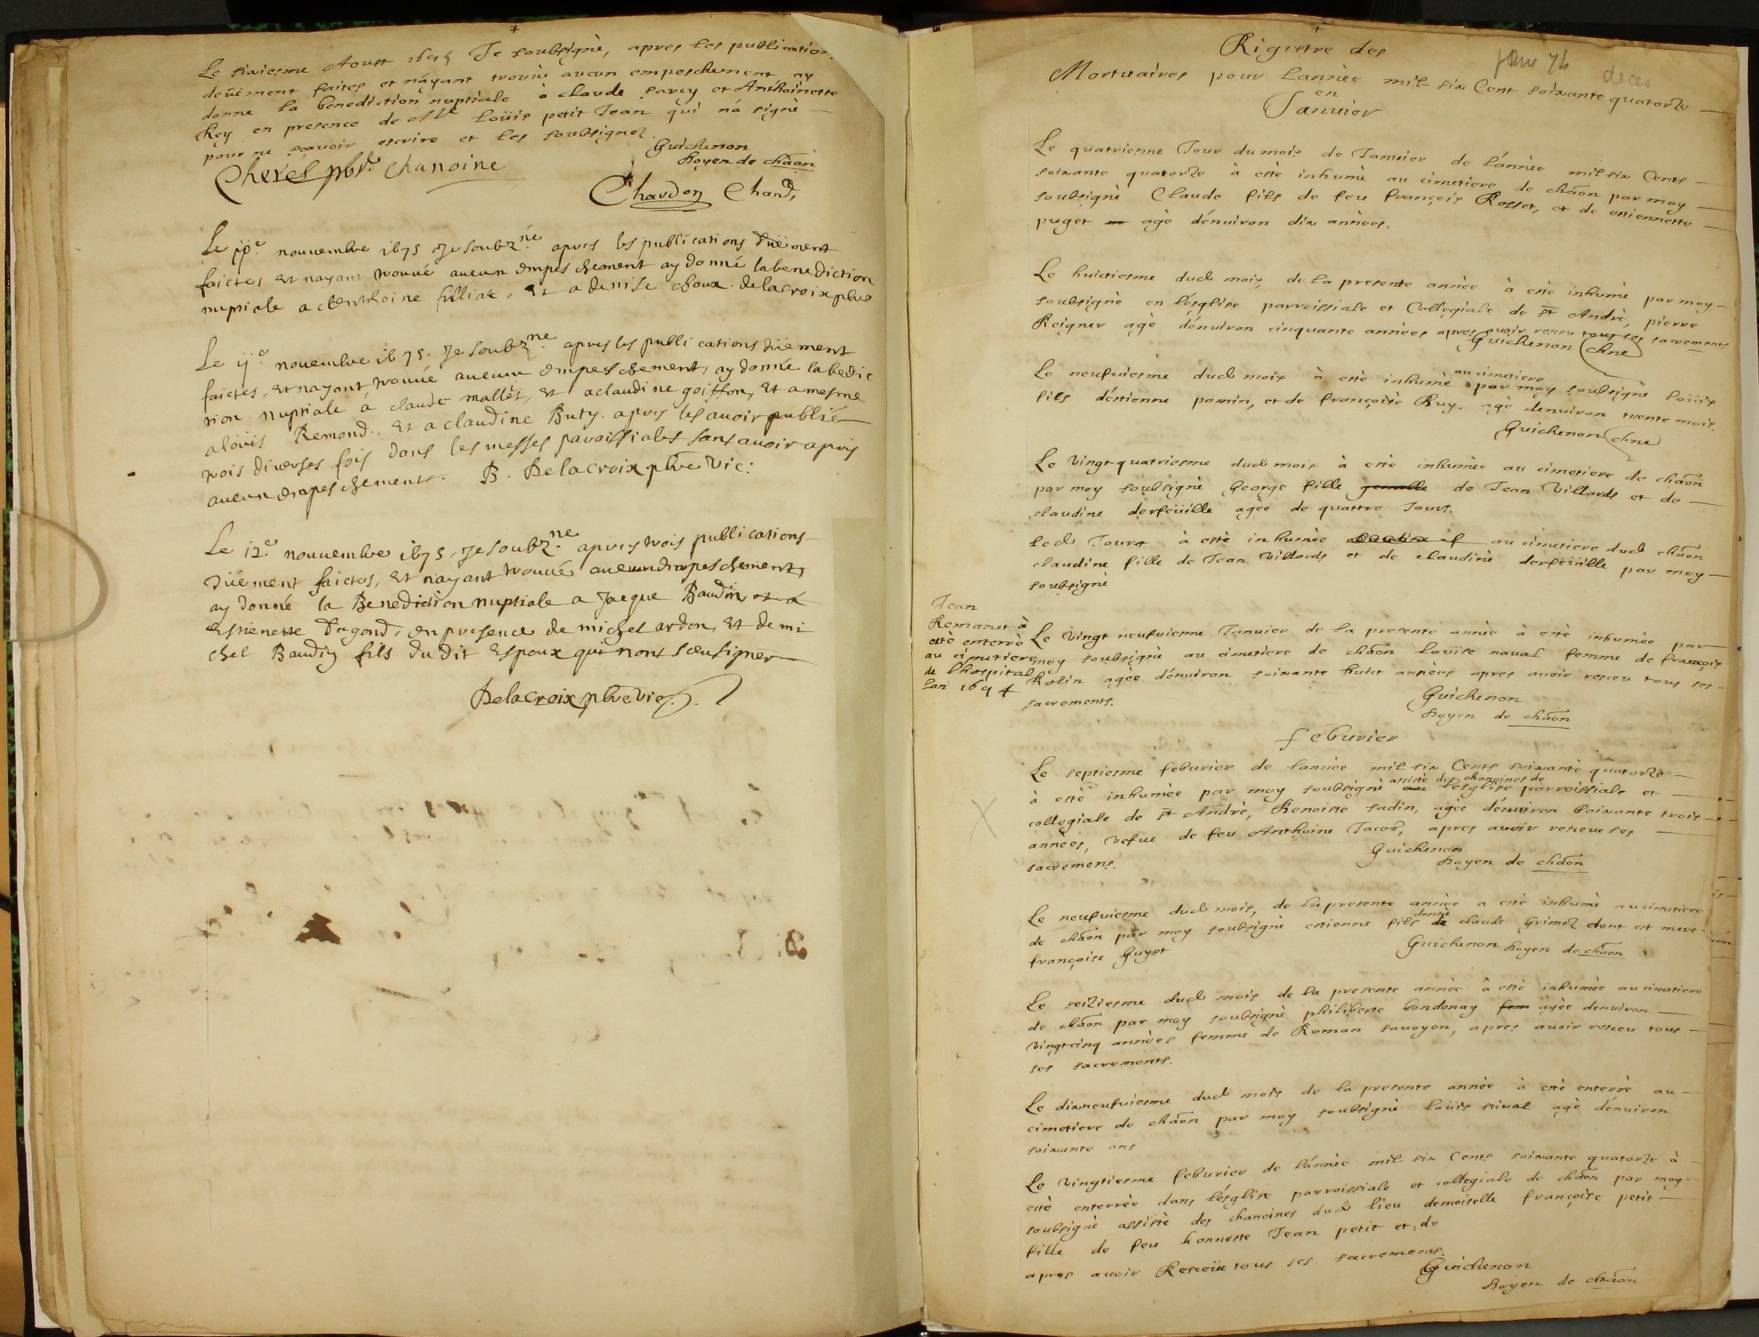 Le sixiesme Aoust 1675 Je soubsigné, apres les publications
deüement faites et n'ayant trouvé aucun empeschement ay
donne la benediction nuptiale à claude sarcy et Anthoinette
Rey en presence de Louis petit Jean qui n'a signé
pour ne sçavoir escrire et les soubsignez
Guichenon
Doyen de chãon
Chevel pbre chanoine
Chardon Chan.
Le novembre 1675 Je soubz.né apres les publications düement
faictes et nayant trouvé aucun empeschement ay donné la benediction
nuptiale a Anthoine filliat, et a denise choux. delacroix pbre
Le novembre 1675. Je soubz.ne apres les publications düement
faictes, et nayant trouvé aucun empeschement, ay donné la bedic
tion nuptiale à claude mallet, et a claudine goiffon, et a mesme
a loüis Remond, et a claudine Buty. apres les avoir publié
trois diverses fois dans les messes paroissiales sans avoir apris
aucun empeschement. B. Delacroix pbre Vic:
Le 12e novembre 1675, Je soubz.ne apres trois publications
düement faictes, et nayant trouvé aucun empeschement,
ay donné la Benediction nuptiale a Jacque Baudin et a
estienette Dugond, en presence de michel ardon, et de mi
chel Baudin fils du dit espoux qui nont sceu signer
Delacroix pbre Vic.
Rigistre des
Mortuaires pour l'année mil six Cent soixante quatorze
en
Janvier
74 deces
Le quatriesme Jour du mois de Janvier de l'année mil six Cents
soixante quatorze à esté inhumé au cimetiere de chãon par moy
soubsigné Claude fils de feu françois Rosset, et de estiennette
puget agé d'environ dix années.
Le huictiesme dud mois de la presente année à esté inhumé par moy
soubsigné en l'esglise parroissiale et Collegiale de St André, pierre
Reigner agé d'environ cinquante années apres avoir receu tous ses sacrements
Guichenon chne
au cimetiere
Le neufviesme dud mois à esté inhumé par moy soubsigné loüis
fils d'estienne pomin, et de françoise Ruy. agé d'environ trente mois.
Guichenon chne
Le vingt quatriesme dud mois à esté inhumée au cimetiere de chãon
par moy soubsigné George fille gemelle de Jean Villards et de
claudine derfeüille agée de quattre Jours.
Led Jour à esté inhumée au cimetiere dud chãon
claudine fille de Jean Villards et de claudine derfeüille par moy
soubsigné
Jean
Remanet à
esté enterré
au cimetiere
de l'hospital
lan 1694
Le vingt neufviesme Janvier de la presente année à esté inhumée par
moy soubsigné au cimetiere de chãon Louise naval femme de françois
Rolin agée d'environ soixante huict années apres avoir receu tous ses
sacrements.
Guichenon
Doyen de chãon
febvrier
Le septiesme febvrier de lannée mil six Cents soixante quatorze
assisté des chanoines de
à esté inhumée par moy soubsigné l'esglise parroissiale et
collegiale de St André, Benoiste sadin, agée d'environ soixante trois
années, vefue de feu Anthoine Jacob, apres avoir receu ses
sacrements.
Guichenon
Doyen de chãon
Le neufviesme dud mois, de la presente année a esté inhumé au cimetiere
de chãon par moy soubsigné estienne fils de claude Grimoz dont est mere
françoise Guyot
Guichenon Doyen de chãon
Le seiziesme dud mois de la presente année à esté inhumée au cimetiere
de chãon par moy soubsigné philiberte bondonay fem agée denviron
vingtcinq années femme de Roman savoyen, apres avoir receu tous
ses sacrements.
Le dixneufviesme dud mois de la presente année à esté enterré au
cimetiere de chãon par moy soubsigné loüis rival agé d'environ
soixante ans
Le vingtiesme febvrier de l'année mil six Cents soixante quatorze à
esté enterrée dans l'esglise parroissiale et collegiale de chãon par moy
soubsigné assisté des chanoines dud lieu demoiselle françoise petit
fille de feu honneste Jean petit et de
apres avoir Receü tous ses sacrements.
Guichenon
Doyen de chãon